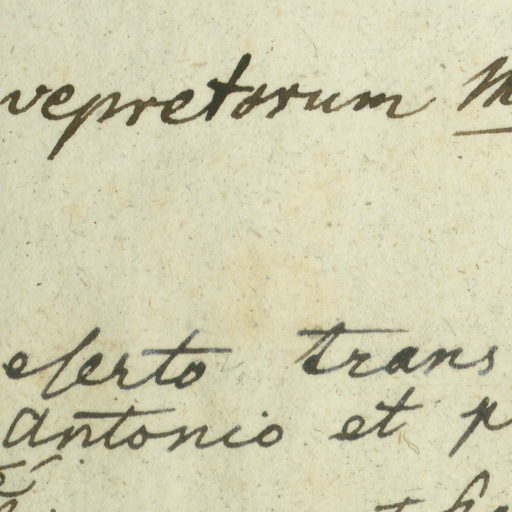 vepretorum M
eserto trans
Antonio et p